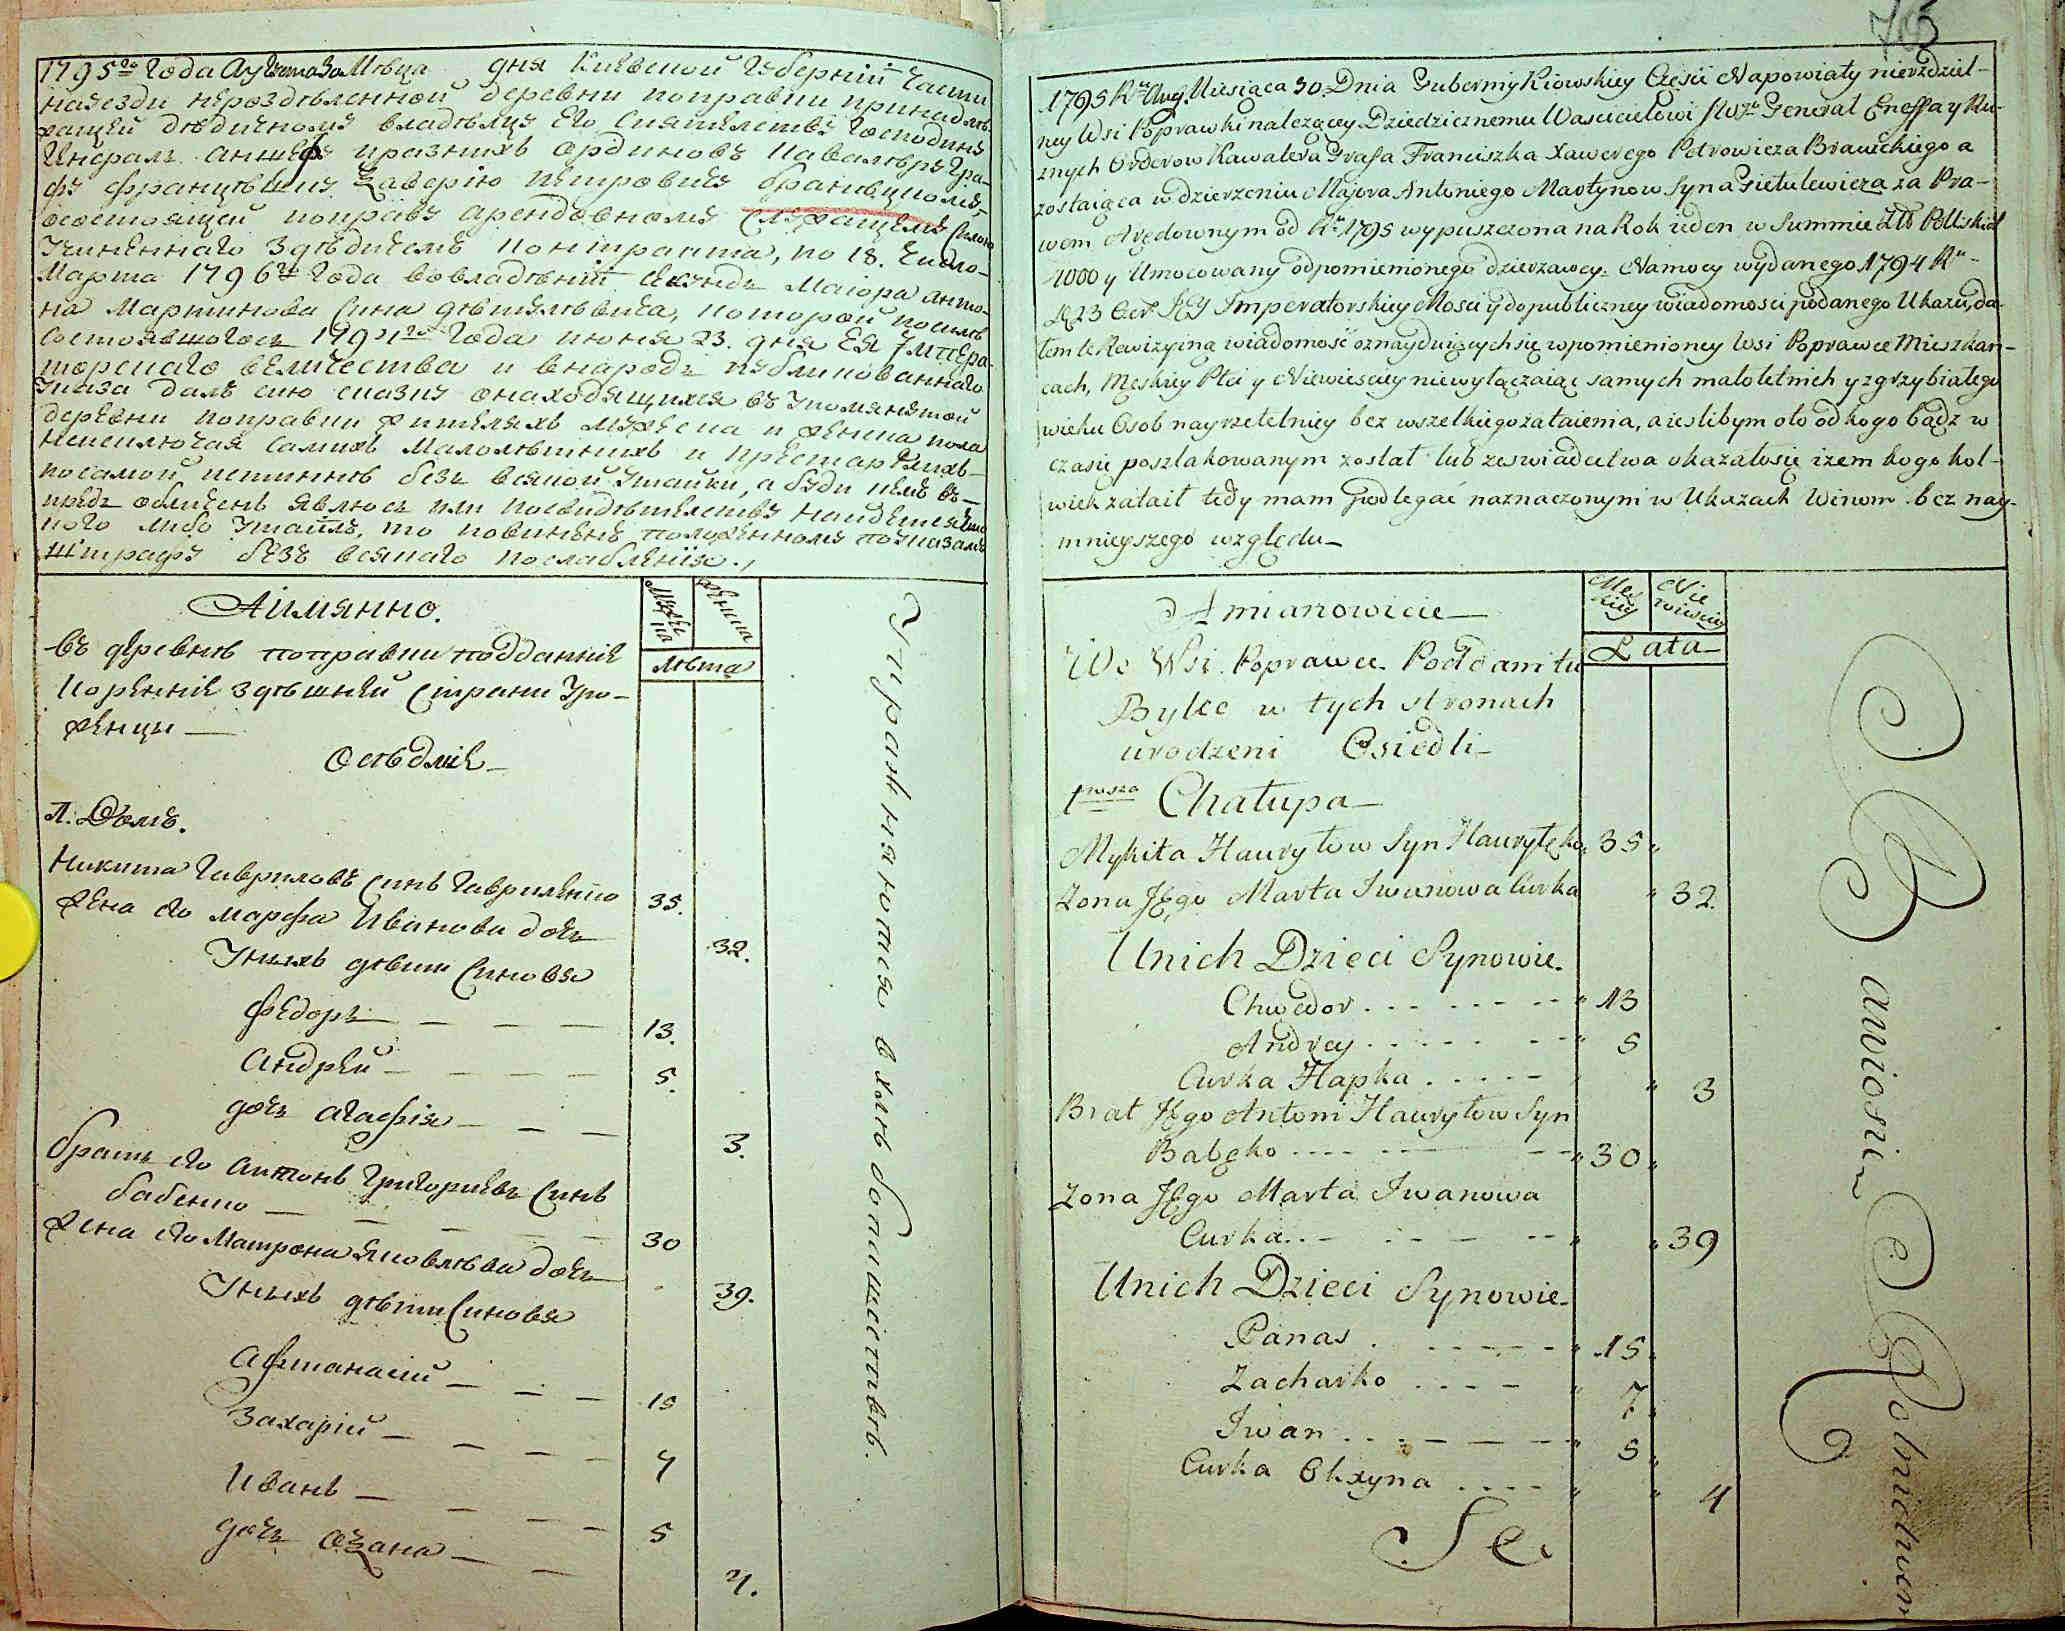 1795го года Августа 30 Мѣсца дня Киевской Губерніи части
науезди нероздѣленной деревни поправки принадлѣ-
жащей дѣдичному владѣльцу его Сіятелству Господину
Инералъ аншефу и разнихъ ординовъ кавалѣру Гра-
фу Францѣшку Ѯаверію Петровичу браницкому,
осостоящей поправу арендовному Служащему Силою
учиненнаго Здѣдичемъ контракта, по 18. число
Марта 1796го года вовладѣніи Секундъ Маіора анто-
на Мартинова Сина дѣтулѣвича, которой посилѣ
состоявшогось 1794го года июня 23. дня Ея Імпера-
торскаго величества и внародъ публикованнаго
указа далъ сию сказку онаходящихся въ упомянутой
деревни поправки жителяхъ мужеска и женска пола
неисключая самихъ малолѣтнихъ и престарѣлихъ
посамой истиннѣ безъ всякой утайки, а буди кемъ въ
предъ обличенъ явлюсь или посвидѣтелству найдется что
кого либо утаилъ, то повиненъ положенному поуказамъ
штрафу безъ всякаго послабленія.
Аимянно.
Мужеска
Женска
въ деревнѣ поправки подданніе
лѣта
коренніе здѣшней Страни уро-
женцы
Осѣдліе
1. Домъ.
Никита Гавриловъ Синъ Гавриленко 35.
Жена его марфа Иванова дочь 32.
Унихъ дѣти Синовья
Федоръ 13.
Андрей 5.
дочь агафія 3.
братъ его антонъ Григориевъ Синъ
бабенко 30
Жена его Матрона яковлѣва дочь 39.
Унихъ дѣти Синовья
Афтанасій 15
Захарій 7
Иванъ 5
дочь Оѯана 4.
Упражняются в хлѣбопашествѣ.
76
1795 Rku Aug. Miesiąca 30. Dnia Guberniy Kiowskiey Częsci Napowiaty nierozdziel-
ney Wsi Poprawki należącey Dziedzicznemu Wascicielowi JWzu General Eneffa y Ru-
znych Orderow Kawalera Grafa Franciszka Xawerego Petrowicza Branickiego a
zostaiąca w dzierzeniu Majora Antoniego Martynow Syna Gietulewicza za Pra-
wem Arędownym od Rku 1795 wypuszczona na Rok ieden w Summie Złł Pollskich
4000 y Umocowany odpomienionego dzierzawcy. Namocy wydanego 1794 Rku
Jej Imperatorskiey Mosci y dopubliczney wiadomosci podanego Ukazu, da-
łem tę Rewizyiną wiadomość oznayduiących się w pomienioney Wsi Poprawce Mieszkan-
cach, Męskiey Płci y Niewiesciey niewyłączaiąc samych małoletnich y zgrzybiałego
wieku Osob nayrzetelniey bez wszelkiego zataienia, a iesli bym oto od kogo bądz w
czasie poszlakowanym został lub ze swiadectwa okazało się iżem kogo kol-
wiek zataił tedy mam podlegać naznaczonym w Ukazach Winom bez nay-
mnieyszego względu
A mianowicie
Męskiey
Niewiesciey
Lata
We Wsi Poprawce Poddani tu
Bylce w tych stronach
urodzeni Osiedli
1wsza Chałupa
Mykita Hauryłow Syn Hauryłęko 35
Zona Jego Marta Iwanowa Curka 32.
Unich Dzieci Synowie.
Chwedor 13
Andrey 5
Curka Hapka 3
Brat Jego Antoni Hauryłow Syn
Babęko 30
Zona Jego Marta Iwanowa
Curka 39
Unich Dzieci Synowie
Panas 15
Zacharko 7
Iwan 5
Curka Oxyna 4
Se
Bawiosie Rolnictwem